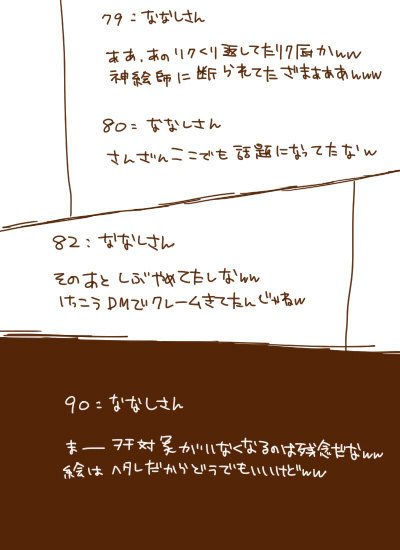 79：ななしさん
ああ、あのリクくり返してたリク厨かww
神絵師に断られてたざまぁああwww
80：ななしさん
さんざんここでも話題になってたなw
82：ななしさん
そのあとしぶやめてたしなww
けっこうDMでクレームきてたんじゃねw
90：ななしさん
まーヲチ対象がいなくなるのは残念だなww
絵はヘタレだからどうでもいいけどww